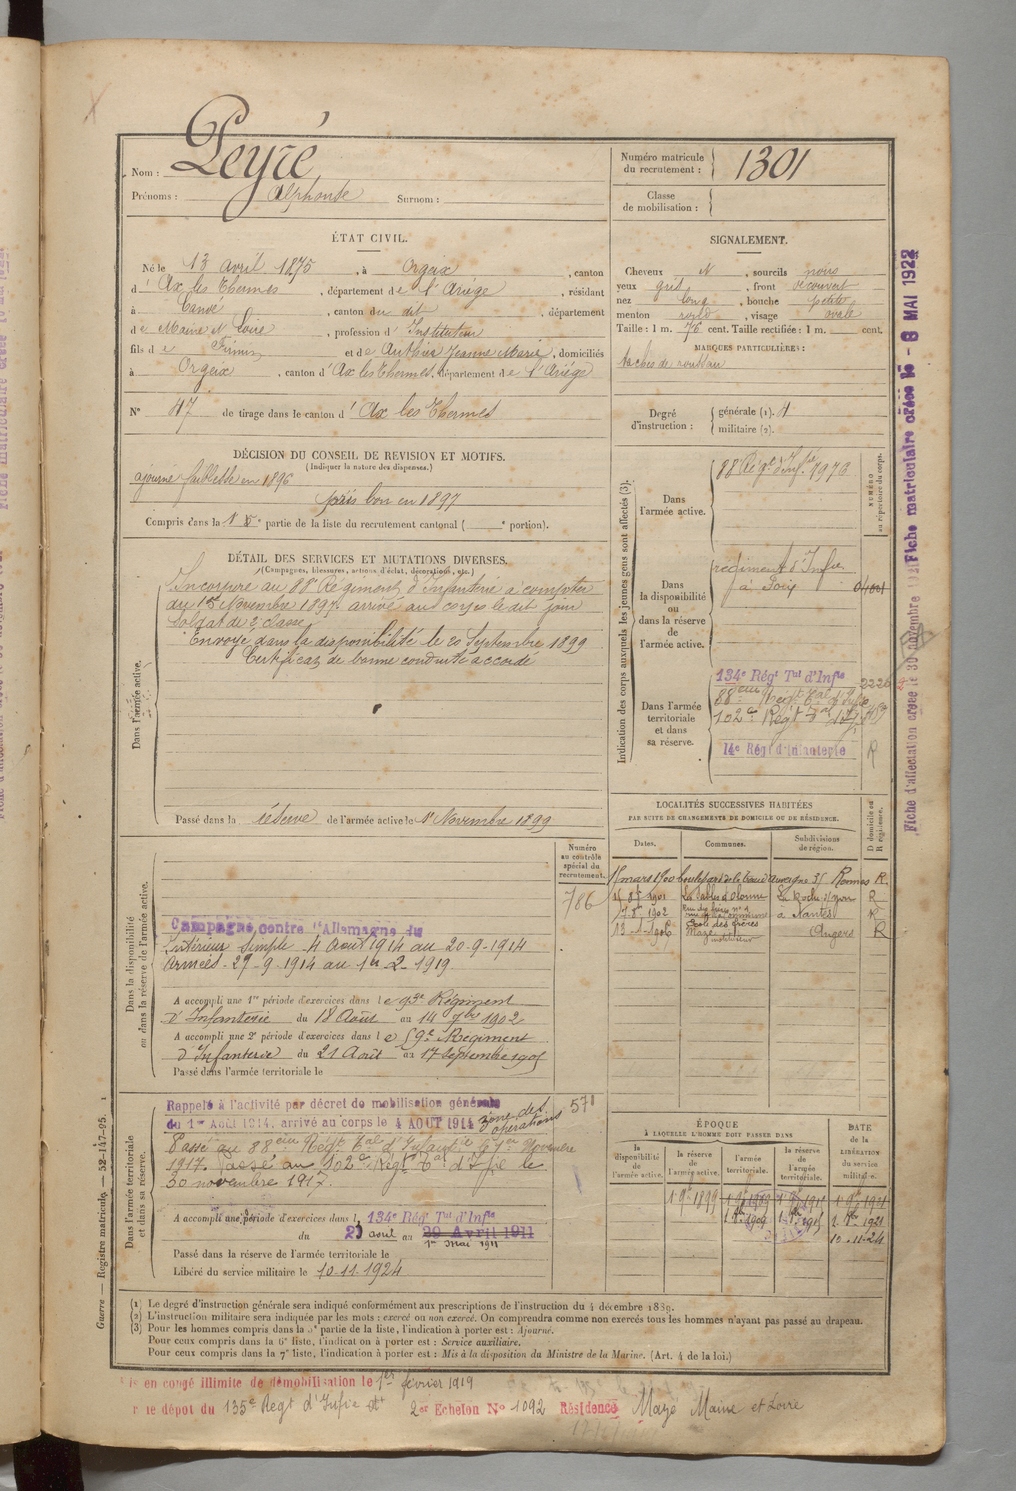 Nom : Peyré
Prénoms : Alphonse Surnom :
Numéro matricule du recrutement : 1301
Classe de mobilisation :
ÉTAT CIVIL.
Né le 13 avril 1875, à Orgeix, canton
d'Ax les Thermes, département de l'Ariège, résidant
à Candé, canton du dit, département
de Maine et Loire, profession d'Instituteur
fils de Firmin et de Authier Jeanne Marie, domiciliés
à Orgeix, canton d'Ax les Thermes, département de l'Ariège
N° 47 de tirage dans le canton d'Ax les Thermes
SIGNALEMENT.
Cheveux N, sourcils noirs
yeux gris, front découvert
nez long, bouche petite
menton rond, visage ovale
Taille : 1 m. 76 cent. Taille rectifiée : 1 m. cent.
MARQUES PARTICULIÈRES :
taches de rousseur
Degré d'instruction : générale (1). 4
militaire (2).
DÉCISION DU CONSEIL DE REVISION ET MOTIFS.
(Indiquer la nature des dispenses.)
ajourné faiblesse en 1896
pris bon en 1897
Compris dans la 1e partie de la liste du recrutement cantonal ( portion).
DÉTAIL DES SERVICES ET MUTATIONS DIVERSES.
(Campagnes, blessures, actions d'éclat, décorations, etc.)
Dans l'armée active.
Incorporé au 88e Régiment d'Infanterie à compter
du 15 Novembre 1897. arrivé au corps le dit jour
Soldat de 2e classe
Envoyé dans la disponibilité le 20 Septembre 1899
Certificat de bonne conduite accordé
Passé dans la réserve de l'armée active le 1er Novembre 1899
Indication des corps auxquels les jeunes gens sont affectés (3).
NUMÉRO au répertoire du corps.
Dans l'armée active.
88 Régt d'Infie
Dans la disponibilité ou dans la réserve de l'armée active.
régiment d'Infie
à Foix
Dans l'armée territoriale et dans sa réserve.
134e Régt Tal d'Infie 2226
88eme Régt Tal d'Infie
102e Régt Tal d'Inf.
14e Régt d'Infanterie R
LOCALITÉS SUCCESSIVES HABITÉES
PAR SUITE DE CHANGEMENTS DE DOMICILE OU DE RÉSIDENCE.
Dates. Communes. Subdivisions de région. D domicile ou R résidence.
15 mars 1900 Rennes R.
1901 La Roche s/yon R
1902 à Nantes R
1906 Mazé instituteur Angers R
Dans la disponibilité ou dans la réserve de l'armée active.
Numéro au contrôle spécial du recrutement.
786
Campagne contre l'Allemagne du
Intérieur simple 4 Août 1914 au 20-9-1914
Armées - 29-9-1914 au 1er-2-1919
A accompli une 1re période d'exercices dans le 93e Régiment
d'Infanterie du 18 Août au 14 7bre 1902
A accompli une 2e période d'exercices dans le Régiment
d'Infanterie du 21 Août au 17 Septembre 1905
Passé dans l'armée territoriale le
Dans l'armée territoriale et dans sa réserve.
Rappelé à l'activité par décret de mobilisation générale
du 1er Août 1914, arrivé au corps le 4 AOUT 1914 zone des opérations
Passé au 88eme Régt Tal d'Infanterie le 1er Novembre
1917. Passé au 102e Régt Tal d'Infie le
30 novembre 1917.
A accompli une période d'exercices dans le 134e Régt Tal d'Infie
du 2 avril au 29 Avril 1911
1er Mai 1911
Passé dans la réserve de l'armée territoriale le
Libéré du service militaire le 10-11-1924
ÉPOQUE
À LAQUELLE L'HOMME DOIT PASSER DANS
la disponibilité de l'armée active. la réserve de l'armée active. l'armée territoriale. la réserve de l'armée territoriale. DATE de la LIBÉRATION du service militaire.
1 9bre 1899
10.11.24
(1) Le degré d'instruction générale sera indiqué conformément aux prescriptions de l'instruction du 4 décembre 1889.
(2) L'instruction militaire sera indiquée par les mots : exercé ou non exercé. On comprendra comme non exercés tous les hommes n'ayant pas passé au drapeau.
(3) Pour les hommes compris dans la 5e partie de la liste, l'indication à porter est : Ajourné.
Pour ceux compris dans la 6e liste, l'indication à porter est : Service auxiliaire.
Pour ceux compris dans la 7e liste, l'indication à porter est : Mis à la disposition du Ministre de la Marine. (Art. 4 de la loi.)
is en congé illimité de démobilisation le 1er février 1919
r le dépot du 135e Régt d'Infie 2er Echelon N° 1092 Résidence Mazé Maine et Loire
Guerre — Registre matricule. — 52-147-95.
Fiche d'affectation créée le 30 novembre
Fiche matriculaire créée le - 8 MAI 1922